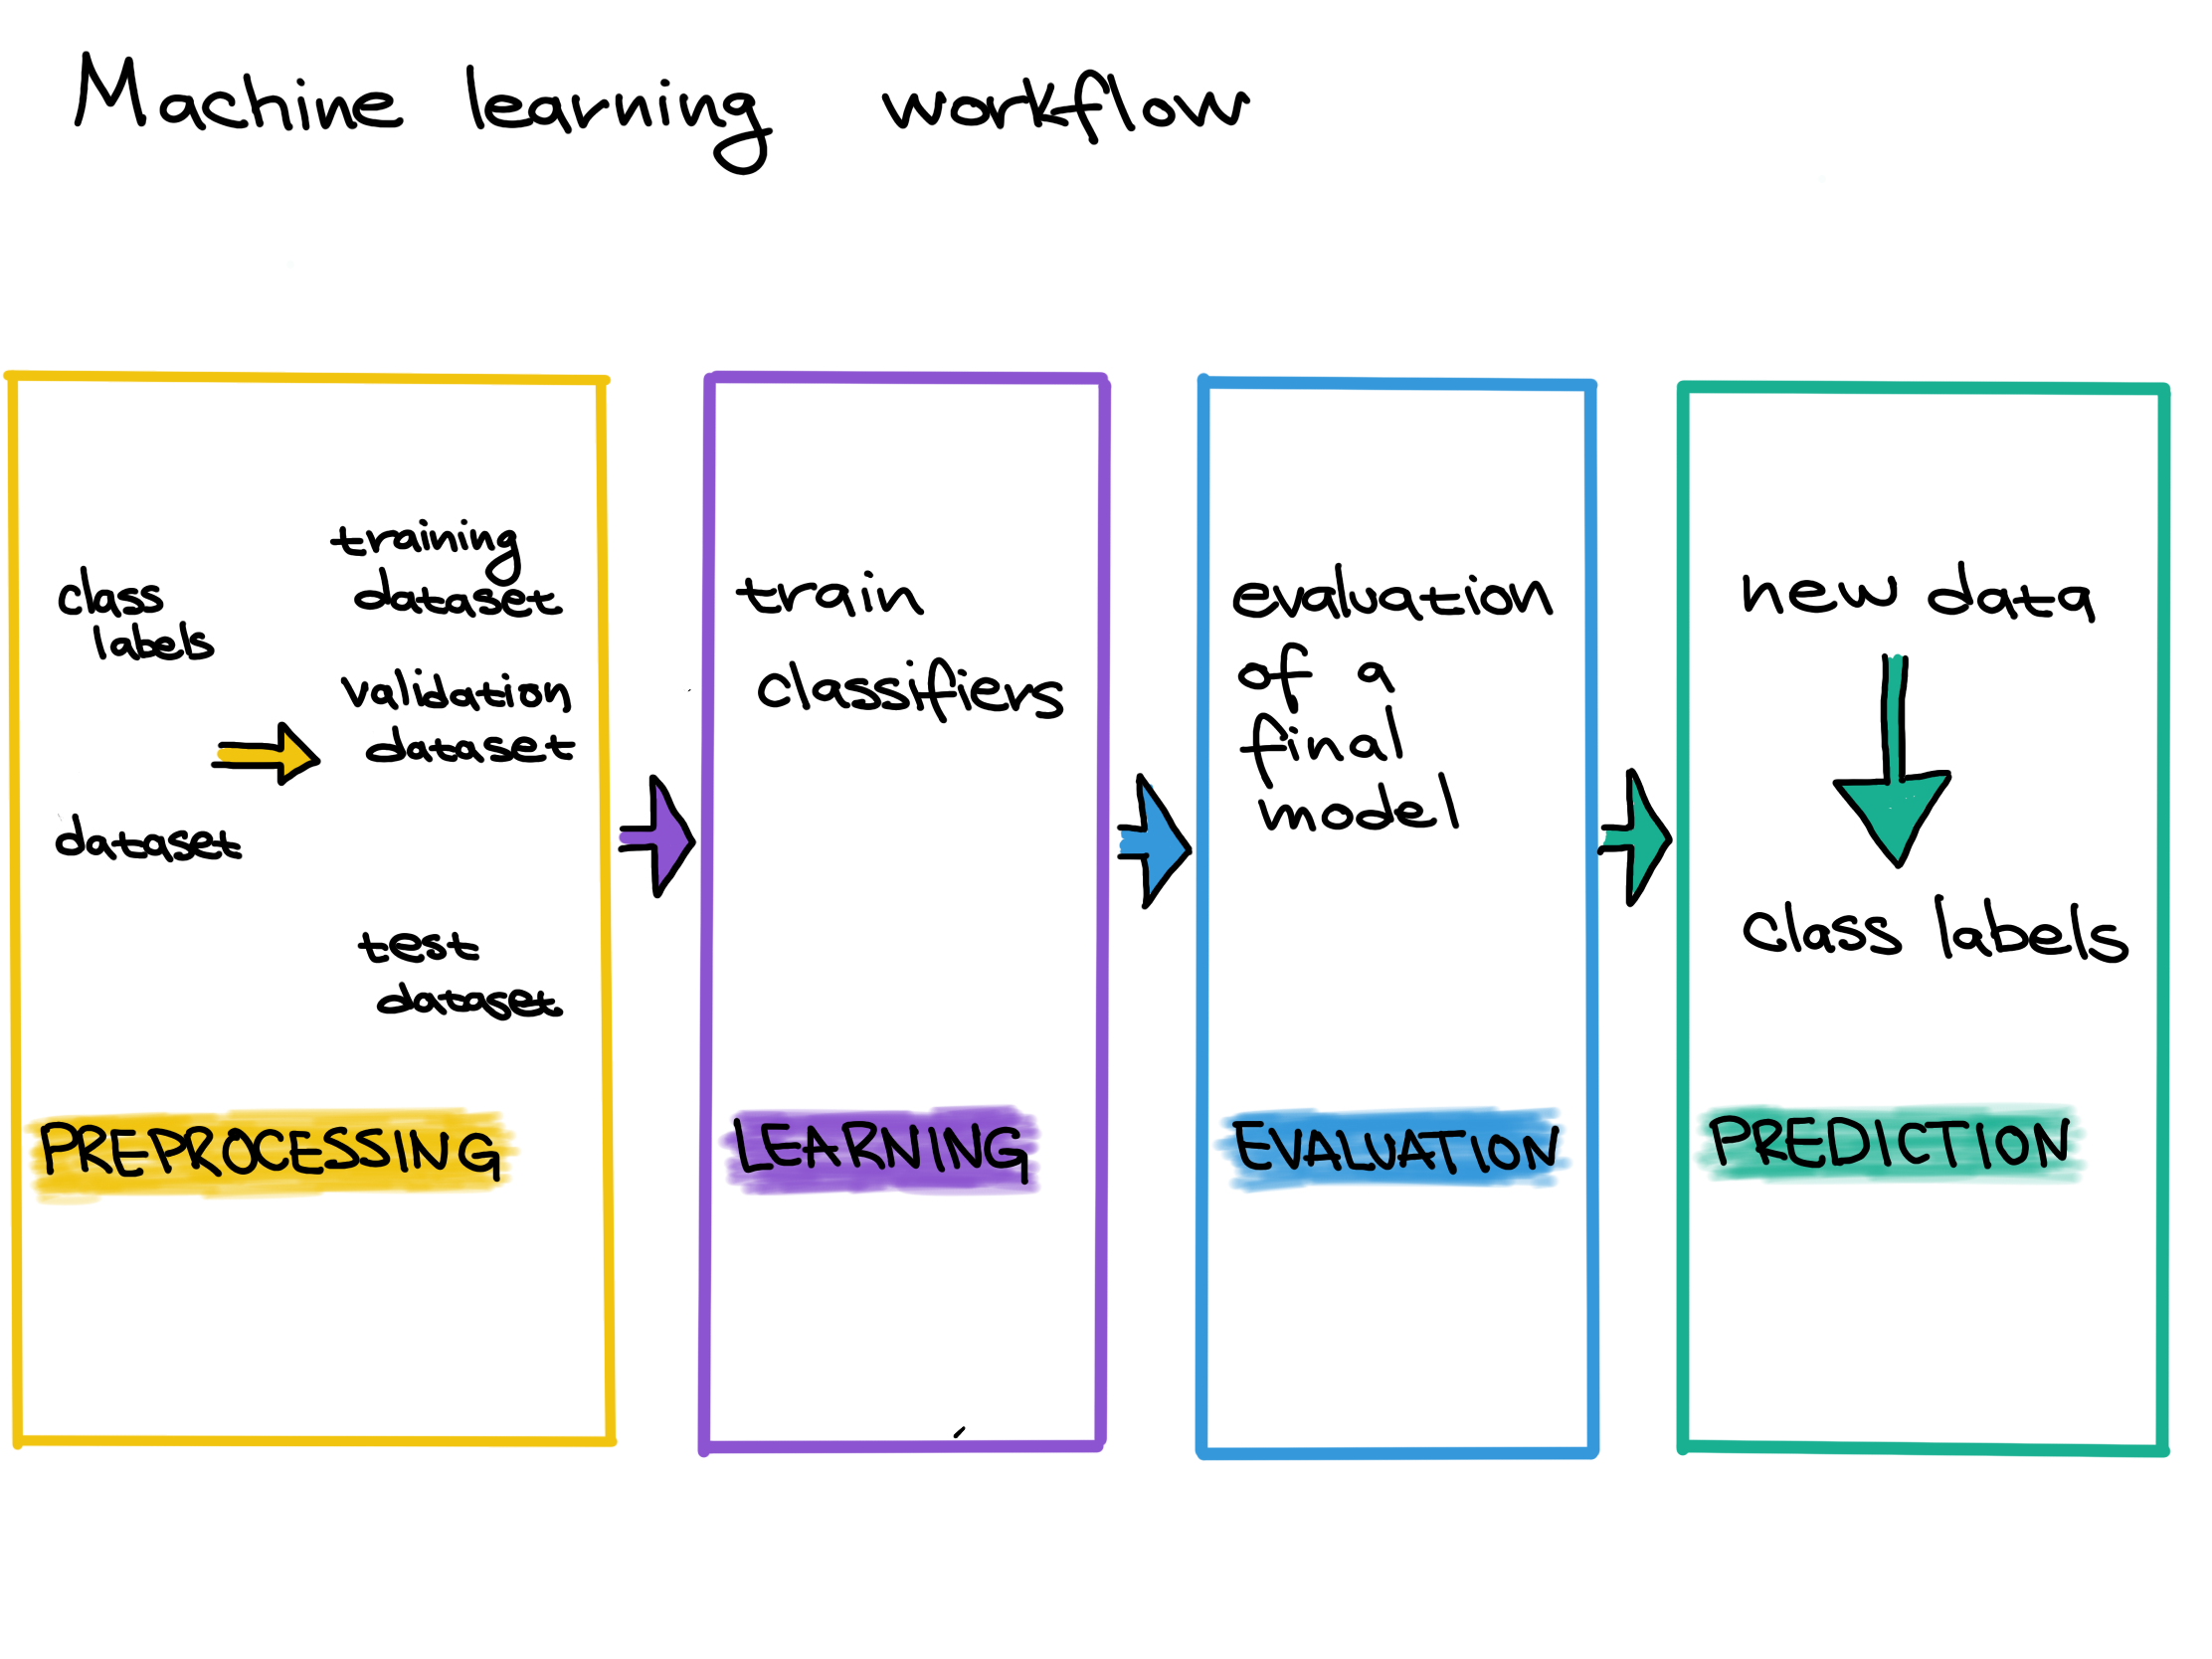 Machine learning workflow
class
labels
dataset
training
dataset
validation
dataset
test
dataset
PREPROCESSING
train
classifiers
LEARNING
evaluation
of a
final
model
EVALUATION
new data
class labels
PREDICTION